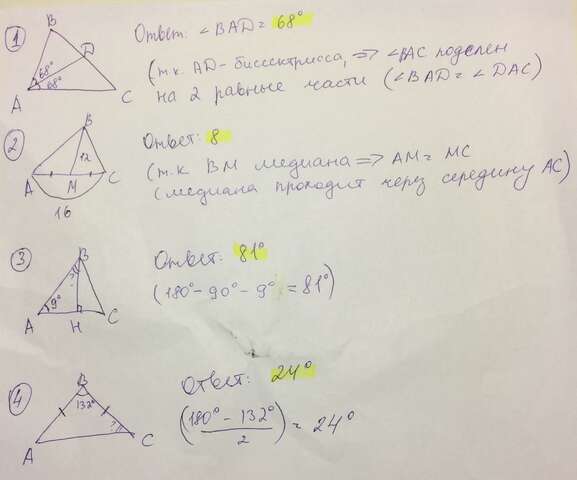 1
B
D
68°
68°
A
C
Ответ: ∠BAD = 68°
(т.к. AD - биссектриса, => ∠BAC поделен
на 2 равные части (∠BAD = ∠DAC)
2
B
12
A
M
C
16
Ответ: 8
(т.к BM медиана => AM = MC
(медиана проходит через середину AC)
3
B
?
9°
A
H
C
Ответ: 81°
(180° - 90° - 9° = 81°)
4
B
132°
?
A
C
Ответ: 24°
(180° - 132° / 2) = 24°